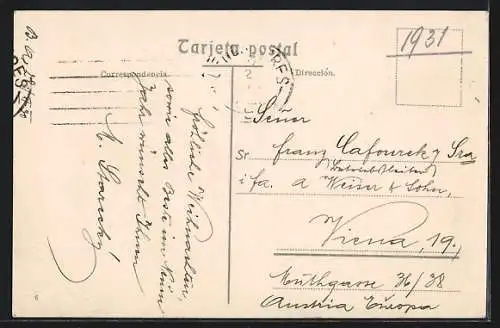 Tarjeta postal
Correspondencia.
Dirección.
1931
B. A.
fröhliche Weihnachten,
sowie alles Beste im Neuen
Jahr wünscht Ihnen
Señor
Sr Franz Cafourek y Sra
(Betriebsleiter)
i/fa. A Weiser & Sohn,
Viena, 19.,
Muthgasse 36/38
Austria Europa
6